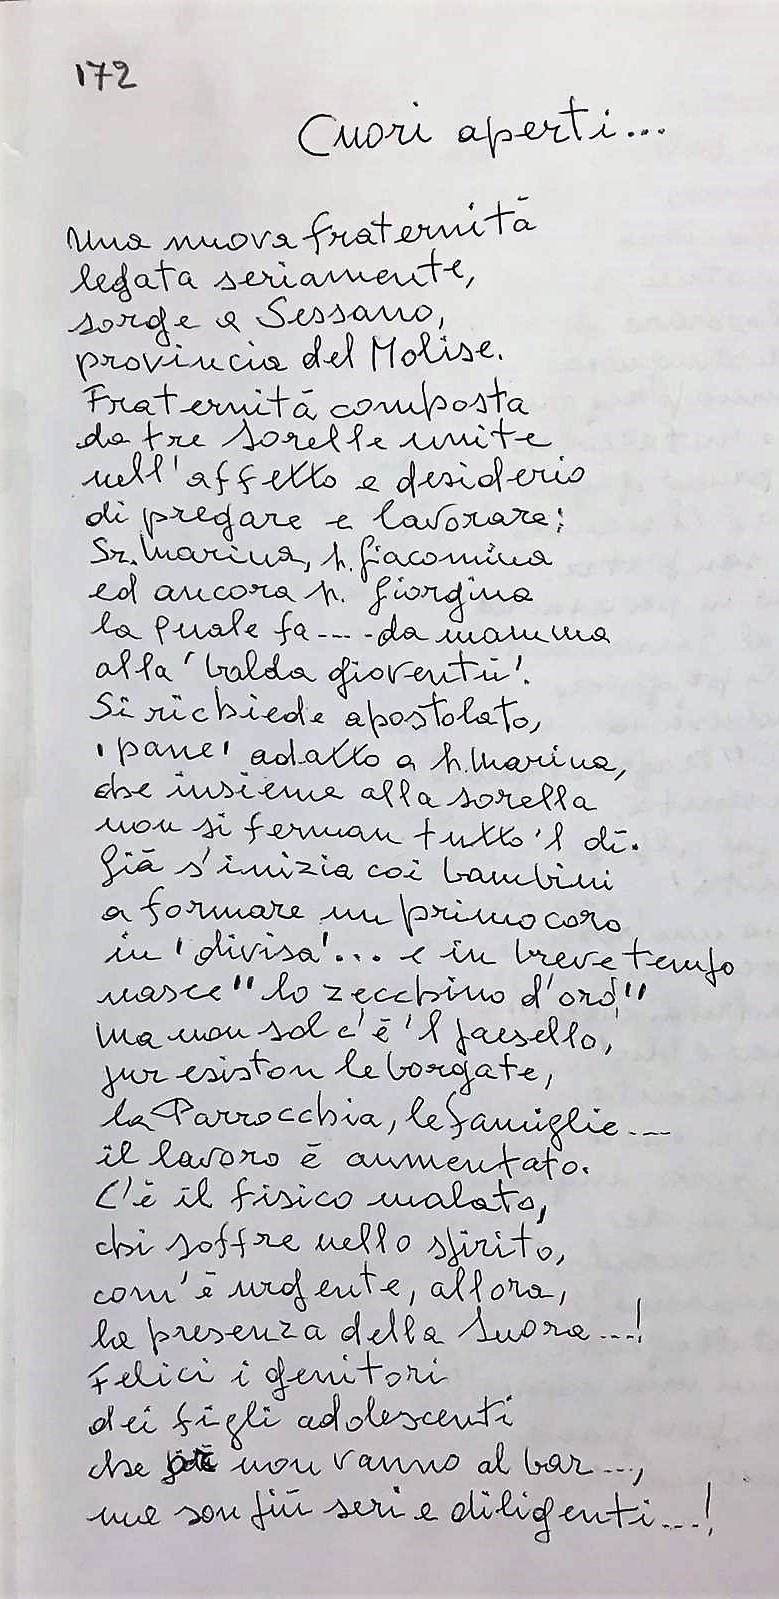 172
Cuori aperti...
Una nuova fraternità
legata seriamente,
sorge a Sessano,
provincia del Molise.
Fraternità composta
da tre sorelle unite
nell'affetto e desiderio
di pregare e lavorare:
Sr. Marina, h. Giacomina
ed ancora h. Giorgina
la quale fa----da mamma
alla 'balda gioventù'.
Si richiede apostolato,
'pane' adatto a h. Marina,
che insieme alla sorella
non si ferman tutto 'l dì.
Già s'inizia coi bambini
a formare un primo coro
in 'divisa'... e in breve tempo
nasce "lo zecchino d'oro"
Ma non sol c'è 'l paesello,
pur esiston le borgate,
la Parrocchia, le famiglie---
il lavoro è aumentato.
C'è il fisico malato,
chi soffre nello spirito,
com'è urgente, allora,
la presenza della Suora...!
Felici i genitori
dei figli adolescenti
che non vanno al bar...,
ma son più seri e diligenti...!